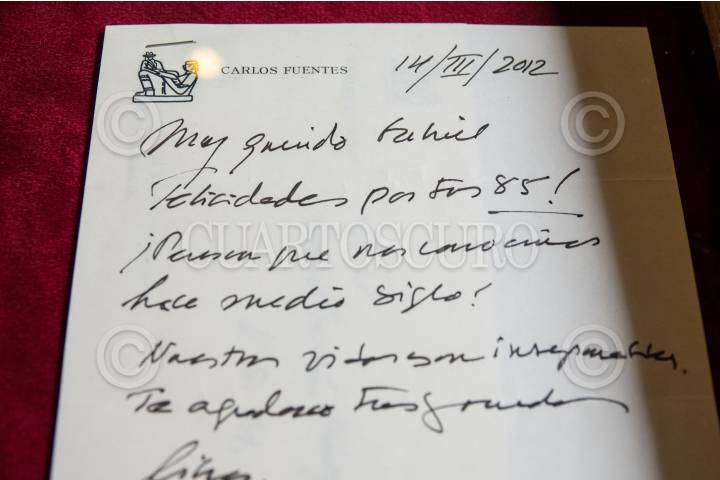 CARLOS FUENTES
14/III/2012
Muy querido Gabriel
Felicidades por tus 85!
¡Pensar que nos conocimos
hace medio siglo!
Nuestras vidas son inseparables.
Te agradezco tus grandes
©
©
CUARTOSCURO
©
©